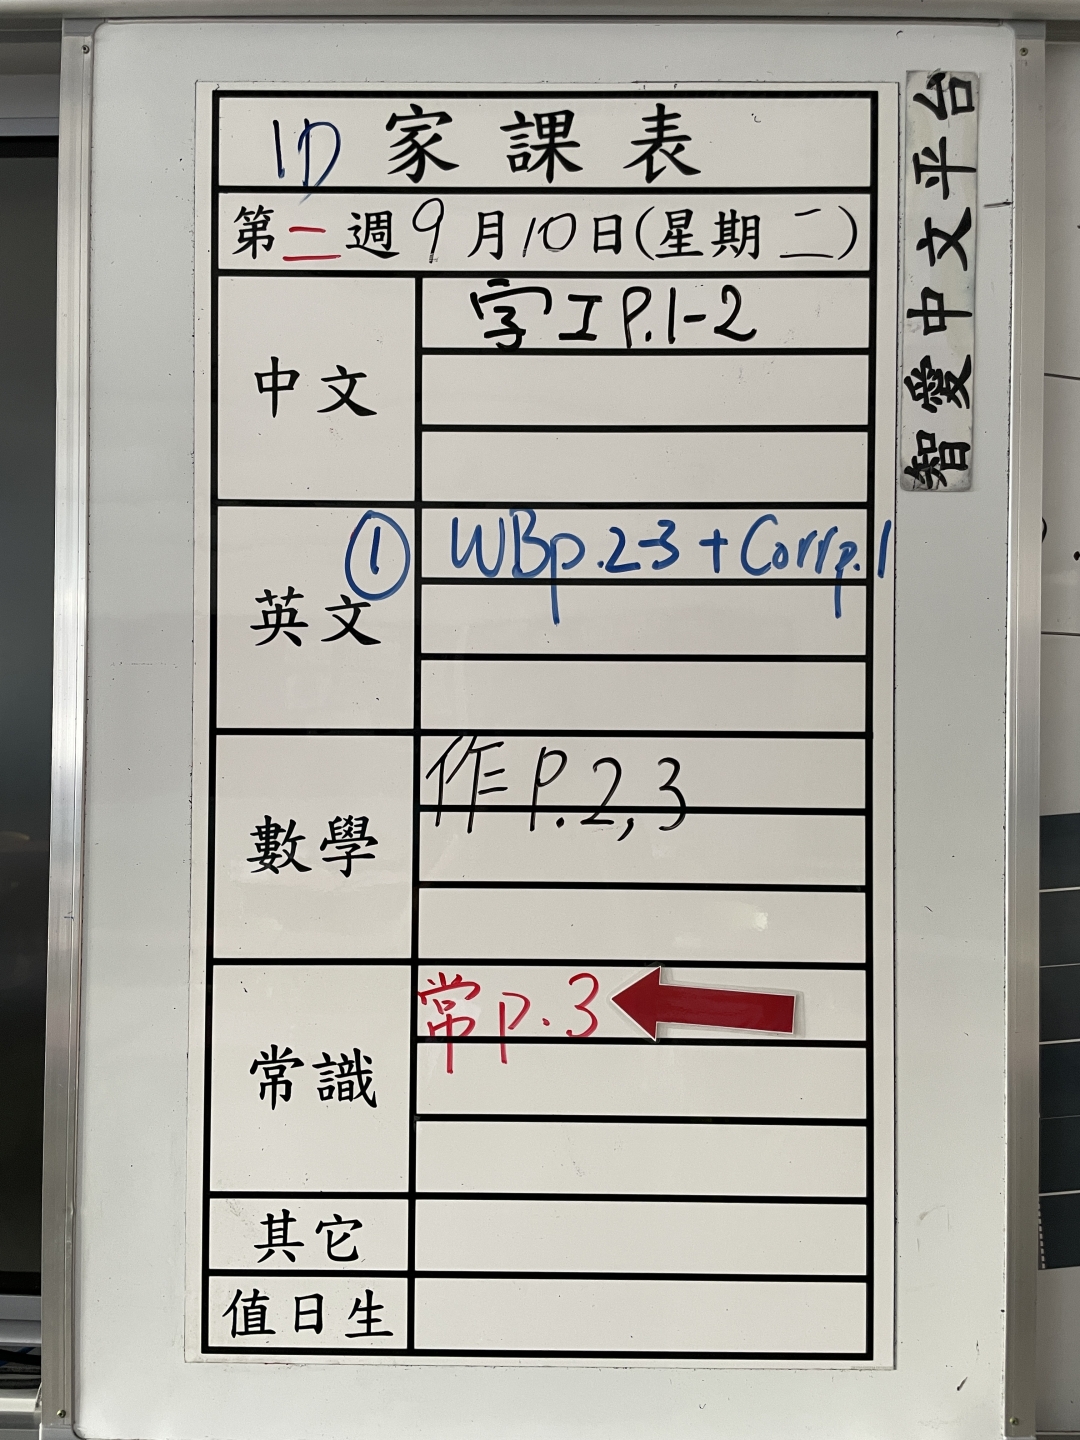 1D 家課表
第二週 9月10日(星期二)
中文
字工 P.1-2
英文
① WB p.2-3 + Corr p.1
數學
作 P.2,3
常識
常 p.3
其它
值日生
智愛中文平台